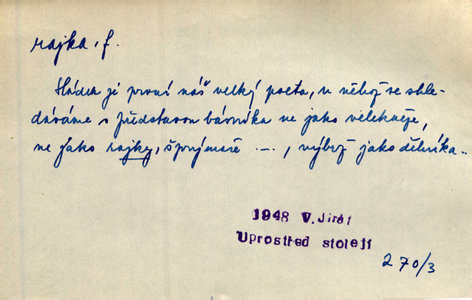 rajka, f.
Hálka je první náš velký poeta, u něhož se shle-
dáváme s představou básníka ne jako velekněze,
ne jako rajky, šprýmaře ..., nýbrž jako dělníka..
1948 V. Jirát
Uprostřed století
270/3